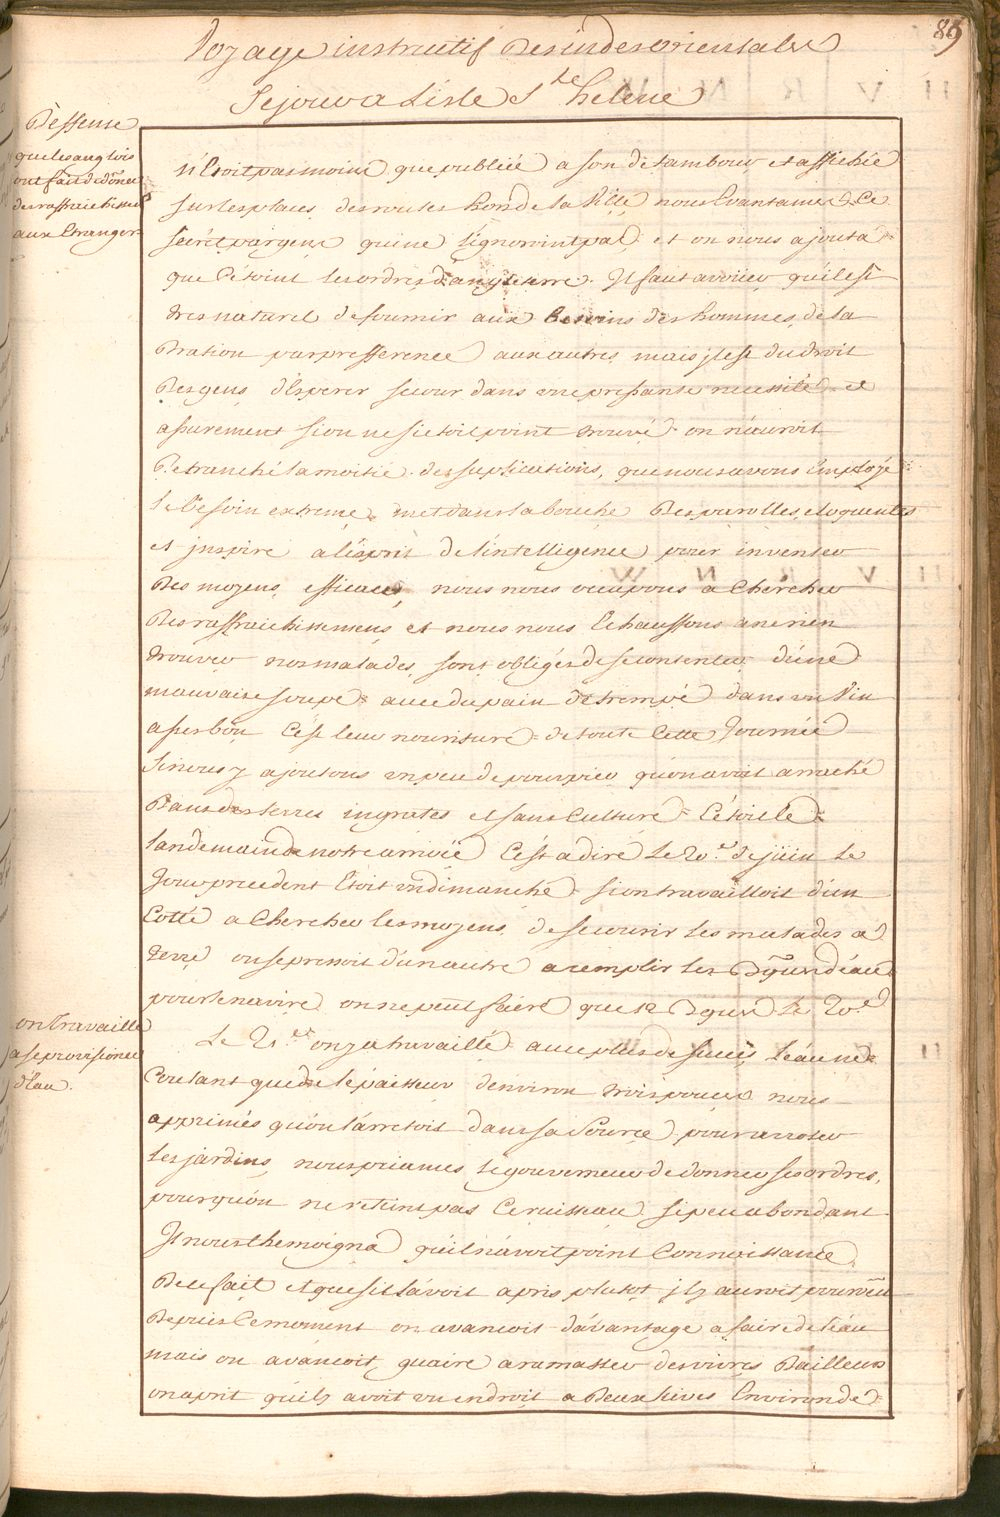 89
Voyage instructif Des indes orientales
Sejour a Lisle Ste helene
Deffense
que les anglois
ont fait de doner
des raffraichissemts
aux Etrangers
n'Etoit pas moins que publiée a son de tambour, et affichée
sur les places, des routes hors de la Ville nous Eventames Ce
secret par gens qui ne l'ignoroint pas et on nous ajouta
que C'étoint les ordres d'angleterre. Il faut avoüer qu'il est
tres naturel de fournir aux besoins des hommes, de la
Nation par prefference aux autres, mais jl est du droit
Des gens, d'Esperer secour dans une pressante necessité et
assurement si on ne s'ietoit point trouvé on n'auroit
Retranché la moitie des suplications, que nous avons Employé
le Besoin extreme met dans la bouche Des parolles, eloquentes
et jnspire a l'ésprit de l'intelligence pour inventer
Des moyens, efficaces, nous nous occupons a Chercher
Des raffraichissemens et nous nous Echauffons a ne rien
trouver nos malades, sont obligés de se contenter d'une
mauvaise soupe avec du pain detrempé dans un Vin
asses bon C'est leur nouriture de toute Cette Journée
si nous y ajoutons un peu de pourpier qu'on avoit arraché
Dans des terres ingrates et sans Culture C'étoit le
landemain de notre arrivée C'est a dire le 20.e de juin le
Jour precedent Etoit un dimanche si on travailloit d'un
Cotté a Chercher les moyens, de secourir les malades a
terre on se pressoit d'un autre a remplir les d'eau
pour le navire on ne peut faire que 12 le 20.e
on travaille
a se provisioner
d'Eau.
Le 21.e on y a travaillé avec plus de succès, l'eau ne
Coulant que de l'épaisseur d'environ trois pouces nous
apprimes qu'on l'arretoit dans sa Source pour arroser
les jardins, nous priames le gouverneur de donner ses ordres,
pour qu'on ne retint pas Ce ruisseau si peu abondant
Il nous themoigna qu'il n'avoit point Connoissance
De ce fait et que s'il l'avoit apris plutot jl y auroit pourvû
Depuis Ce moment on avancoit d'avantage a faire de l'eau
mais on avancoit, guaire a ramasser des vivres D'ailleurs
on aprit qu'il y avoit un endroit a Deux lieües Environ de